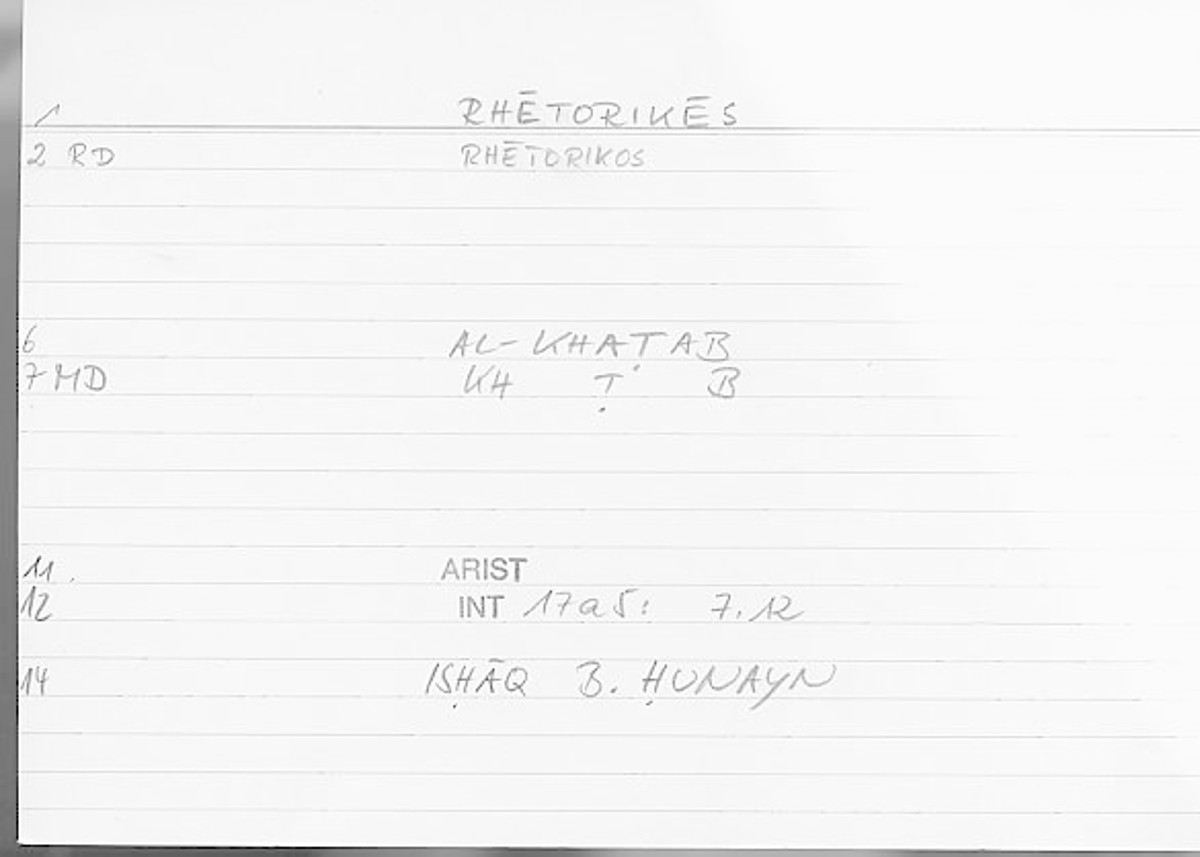 1 RHĒTORIKĒS
2 RD RHĒTORIKOS
6 AL-KHAṬAB
7 MD KH Ṭ B
11. ARIST
12 INT 17a5: 7.12
14 ISḤĀQ B. ḤUNAYN